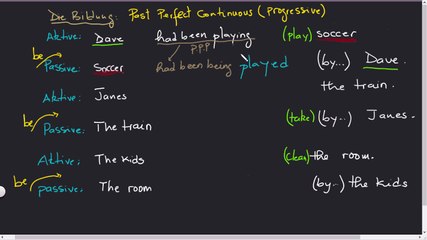 Die Bildung: Past Perfect Continuous (Progressive)
Aktive: Dave had been playing (play) soccer
P.P.P
be
Passive: Soccer had been being played (by...) Dave.
the train.
Aktive: Janes
be
Passive: The train (take) (by...) Janes.
Aktive: The kids (clean) the room.
be
passive: The room (by...) the kids